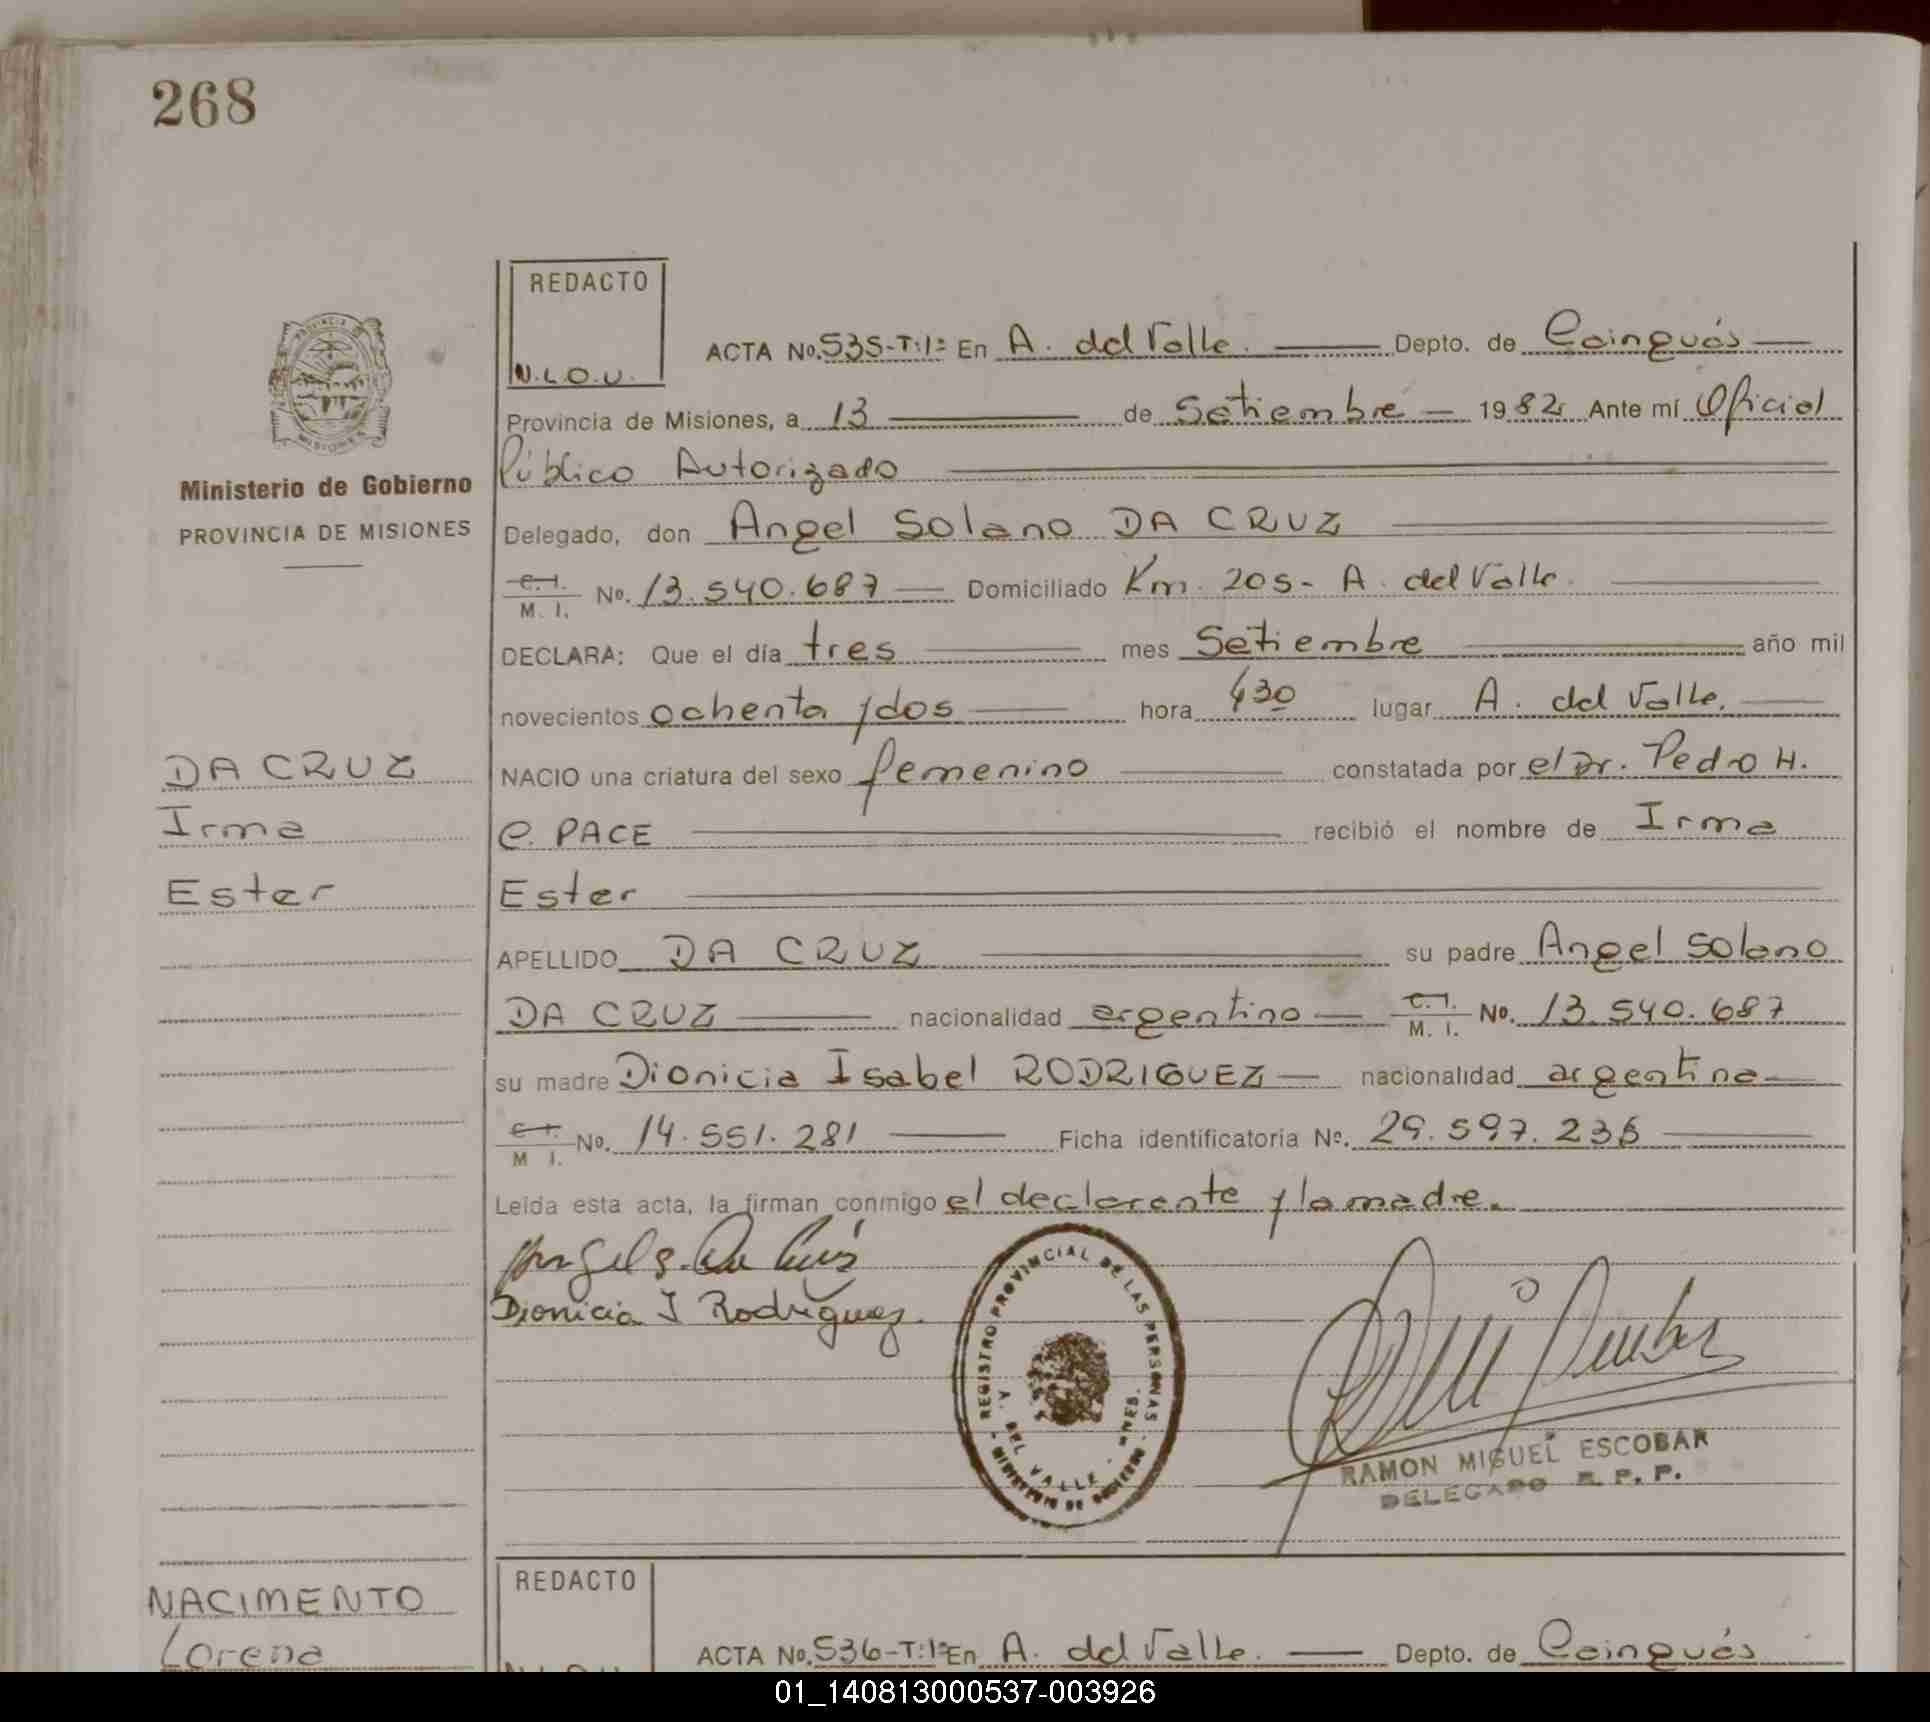 268
REDACTO
N.L.O.U.
ACTA No. 535-T:1º En A. del Valle. Depto. de Cainguás
Provincia de Misiones, a 13 de Setiembre 1982 Ante mí Oficial
Público Autorizado
Ministerio de Gobierno
PROVINCIA DE MISIONES
Delegado, don Angel Solano DA CRUZ
C.I. M. I. No. 13.540.687 Domiciliado Km. 205- A. del Valle.
DECLARA: Que el día tres mes Setiembre año mil
novecientos ochenta y dos hora 430 lugar A. del Valle.
DA CRUZ
NACIO una criatura del sexo femenino constatada por el Dr. Pedro H.
Irma
C. PACE recibió el nombre de Irma
Ester
Ester
APELLIDO DA CRUZ su padre Angel Solano
DA CRUZ nacionalidad argentino C.I. M. I. No. 13.540.687
su madre Dionicia Isabel RODRIGUEZ nacionalidad argentina
C.I. M I. No. 14.551.281 Ficha identificatoria Nº. 29.597.236
Leída esta acta, la firman conmigo el declarante y la madre.
Angel S. Da Cruz
Dionicia I Rodriguez.
REGISTRO PROVINCIAL DE LAS PERSONAS
A. DEL VALLE - MNES.
MINISTERIO DE GOBIERNO
RAMON MIGUEL ESCOBAR
DELEGADO R. P. P.
NACIMENTO
Lorena
REDACTO
N.L.O.U
ACTA No. 536-T:1º En A. del Valle. Depto. de Cainguás
01_140813000537-003926